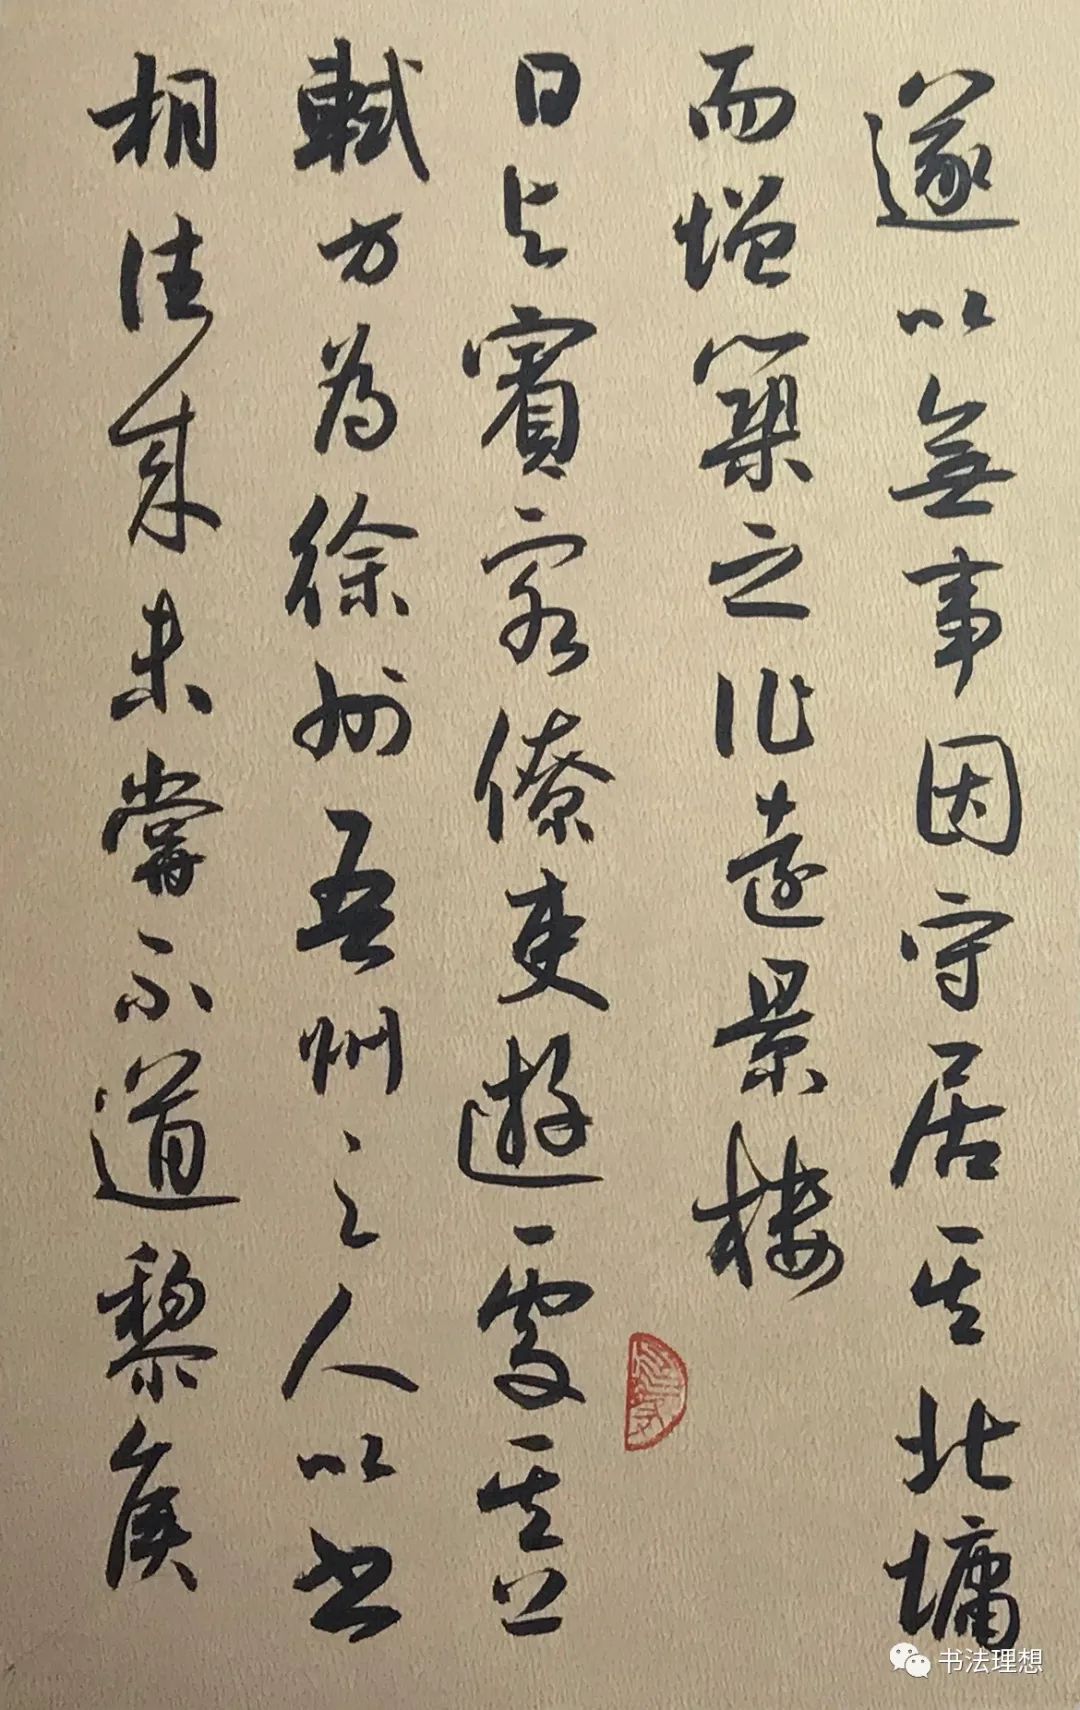 遂以無事因守居其北墉
而增築之作遠景樓
日與賓客僚吏遊處其上
軾方為徐州吾州之人以書
相往來未嘗不道黎侯
书法理想